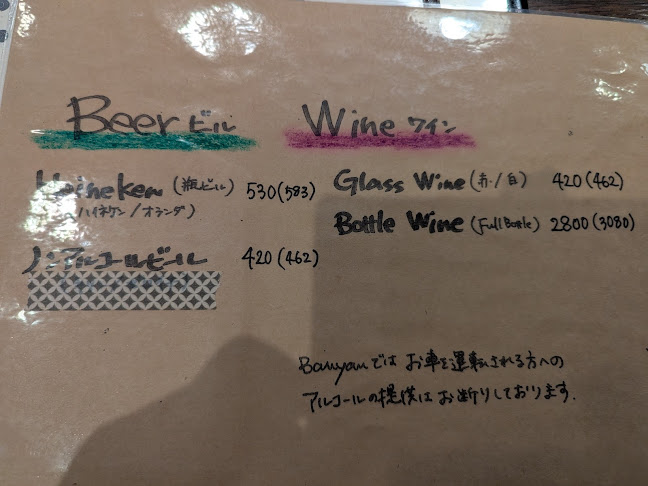 Beer ビール
Heineken (瓶ビール) 530(583)
(ハイネケン/オランダ)
ノンアルコールビール 420(462)
Wine ワイン
Glass Wine (赤/白) 420(462)
Bottle Wine (Full Bottle) 2800(3080)
Banyanでは お車を運転される方への
アルコールの提供は お断りしております.